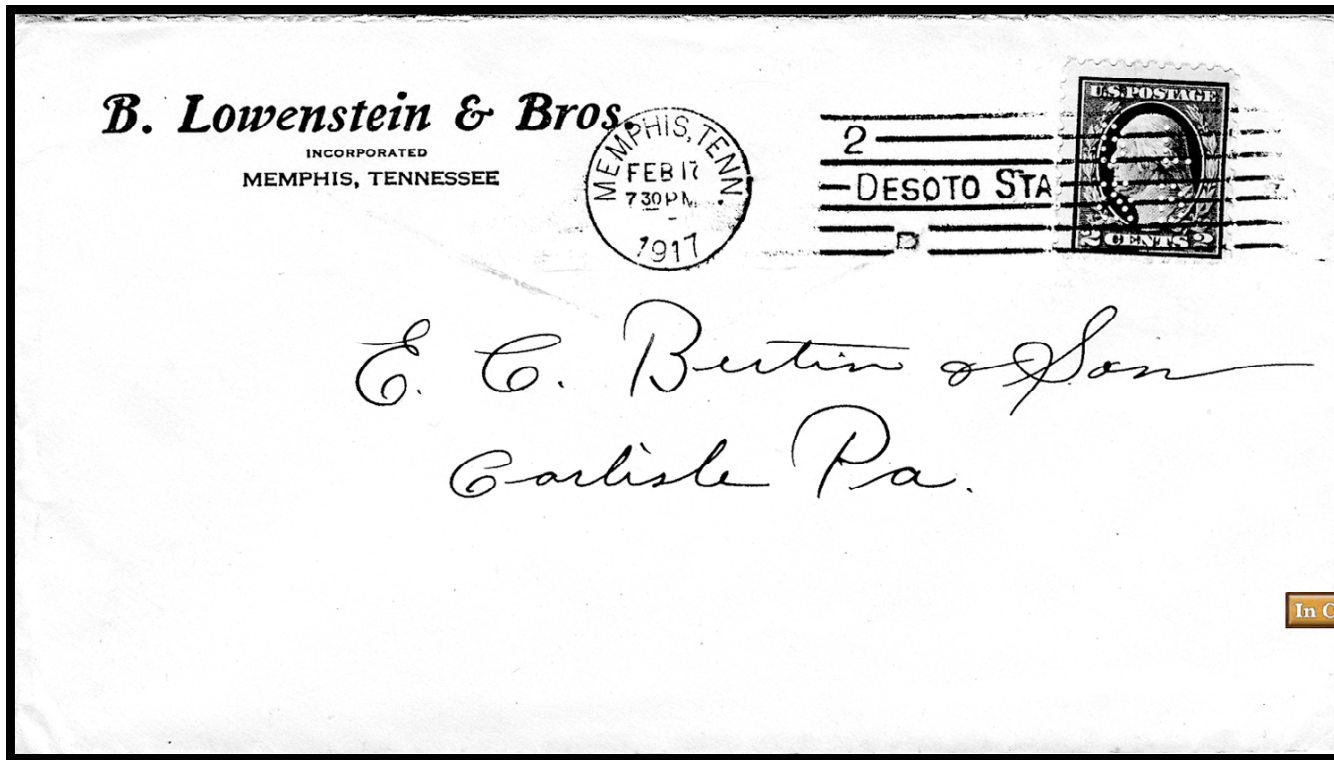 B. Lowenstein & Bros.
INCORPORATED
MEMPHIS, TENNESSEE
MEMPHIS, TENN.
FEB 17
7 30 PM
1917
2
DESOTO STA
D
U.S. POSTAGE
2 CENTS 2
E. C. Bertin & Son
Carlisle Pa.
In